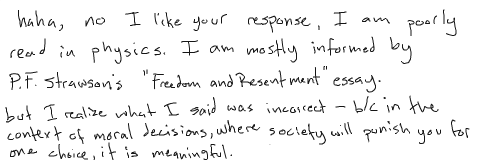 haha, no I like your response, I am poorly
read in physics. I am mostly informed by
P.F. Strawson's "Freedom and Resentment" essay.
but I realize what I said was incorrect – b/c in the
context of moral decisions, where society will punish you for
one choice, it is meaningful.